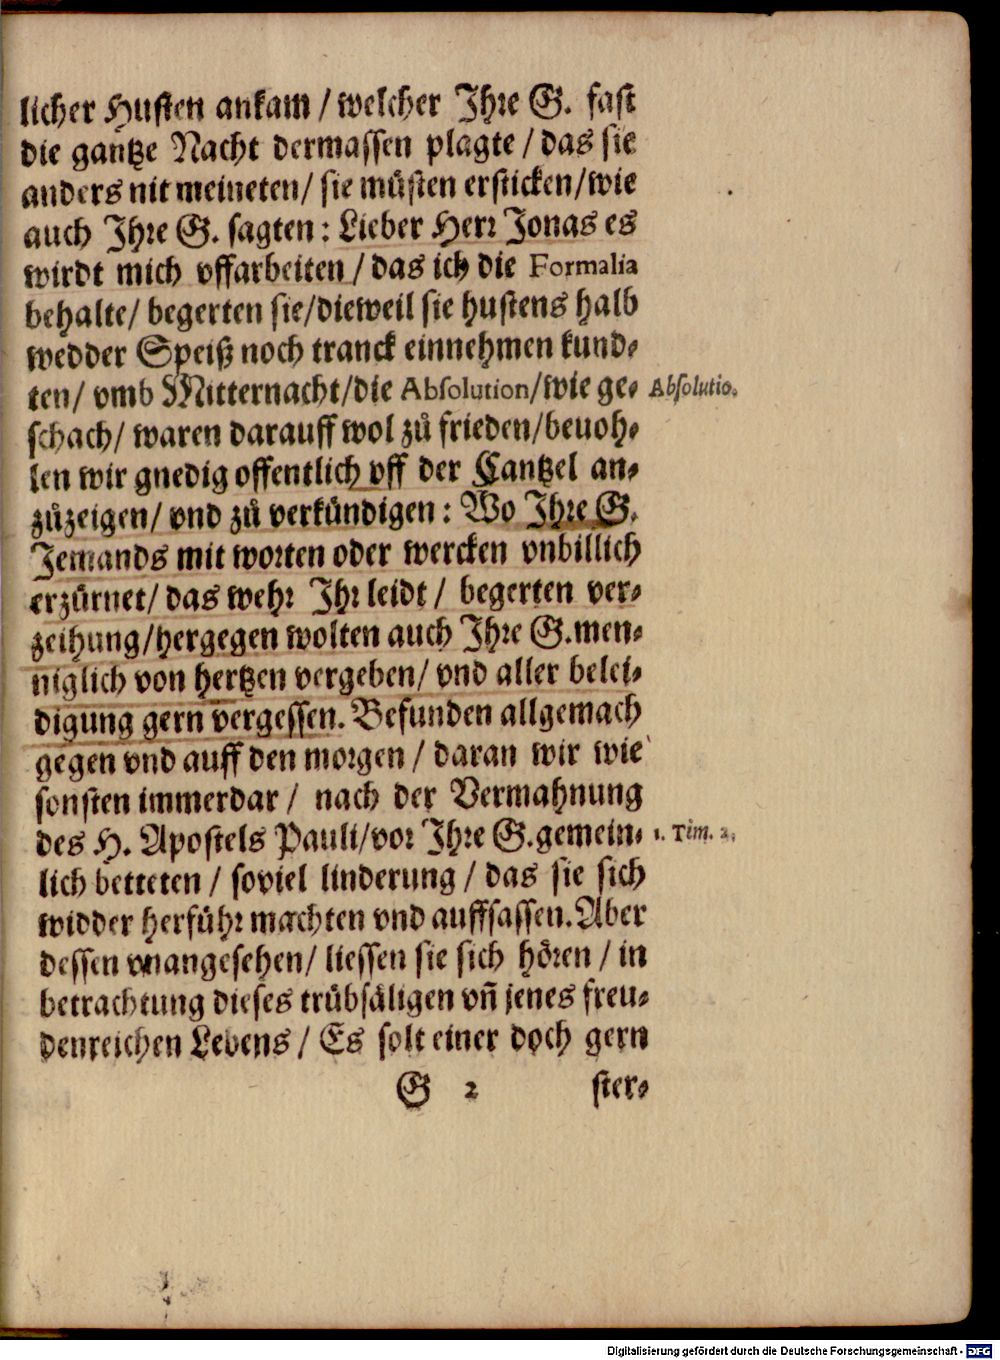 licher Husten ankam / welcher Ihre G. fast
die gantze Nacht dermassen plagte / das sie
anders nit meineten / sie müsten ersticken / wie
auch Ihre G. sagten: Lieber Herr Jonas es
wirdt mich vffarbeiten / das ich die Formalia
behalte / begerten sie / dieweil sie hustens halb
wedder Speiß noch tranck einnehmen kund-
ten / vmb Mitternacht / die Absolution / wie ge-
Absolutio.
schach / waren darauff wol zů frieden / beuoh-
len wir gnedig offentlich vff der Cantzel an-
zůzeigen / vnd zů verkündigen: Wo Ihre G.
Jemands mit worten oder wercken vnbillich
erzürnet / das wehr Ihr leidt / begerten ver-
zeihung / hergegen wolten auch Ihre G. men-
niglich von hertzen vergeben / vnd aller belei-
digung gern vergessen. Befunden allgemach
gegen vnd auff den morgen / daran wir wie
sonsten immerdar / nach der Vermahnung
des H. Apostels Pauli / vor Ihre G. gemein-
1. Tim. 2.
lich betteten / soviel linderung / das sie sich
widder herführ machten vnd auffsassen. Aber
dessen vnangesehen / liessen sie sich hören / in
betrachtung dieses trübsäligen vñ jenes freu-
denreichen Lebens / Es solt einer doch gern
G 2 ster-
Digitalisierung gefördert durch die Deutsche Forschungsgemeinschaft - DFG